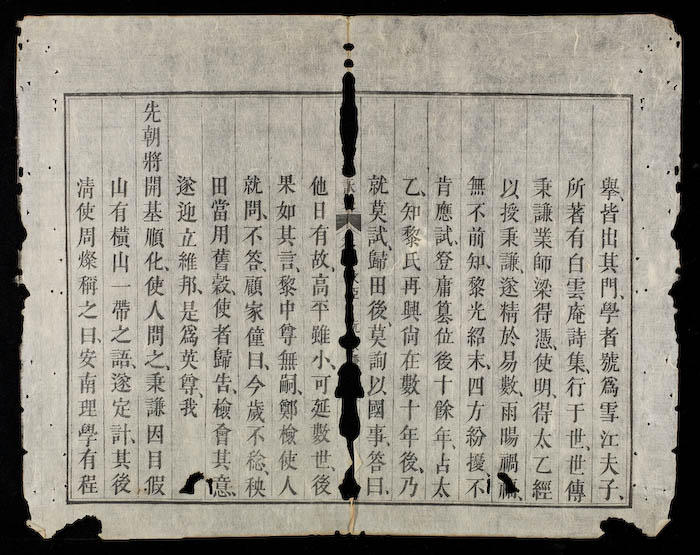 舉、皆出其門、學者號爲雪江夫子、
所著有白雲庵詩集行于世、世傳
秉謙業師梁得憑、使明、得太乙經
以授秉謙、遂精於易數、雨暘禍
無不前知、黎光紹末、四方紛擾、不
肯應試、登庸篡位後十餘年、占太
乙、知黎氏再興尚在數十年後、乃
就莫試、歸田後、莫詢以國事、答曰、
他日有故、高平雖小、可延數世、後
果如其言、黎中尊無嗣、鄭檢使人
就問、不答、顧家僮曰、今歲不稔、秧
田當用舊穀、使者歸告、檢會其意、
遂迎立維邦、是爲英尊、我
先朝將開基順化、使人問之、秉謙因目假
山有橫山一帶之語、遂定計、其後
淸使周燦稱之曰、安南理學有程